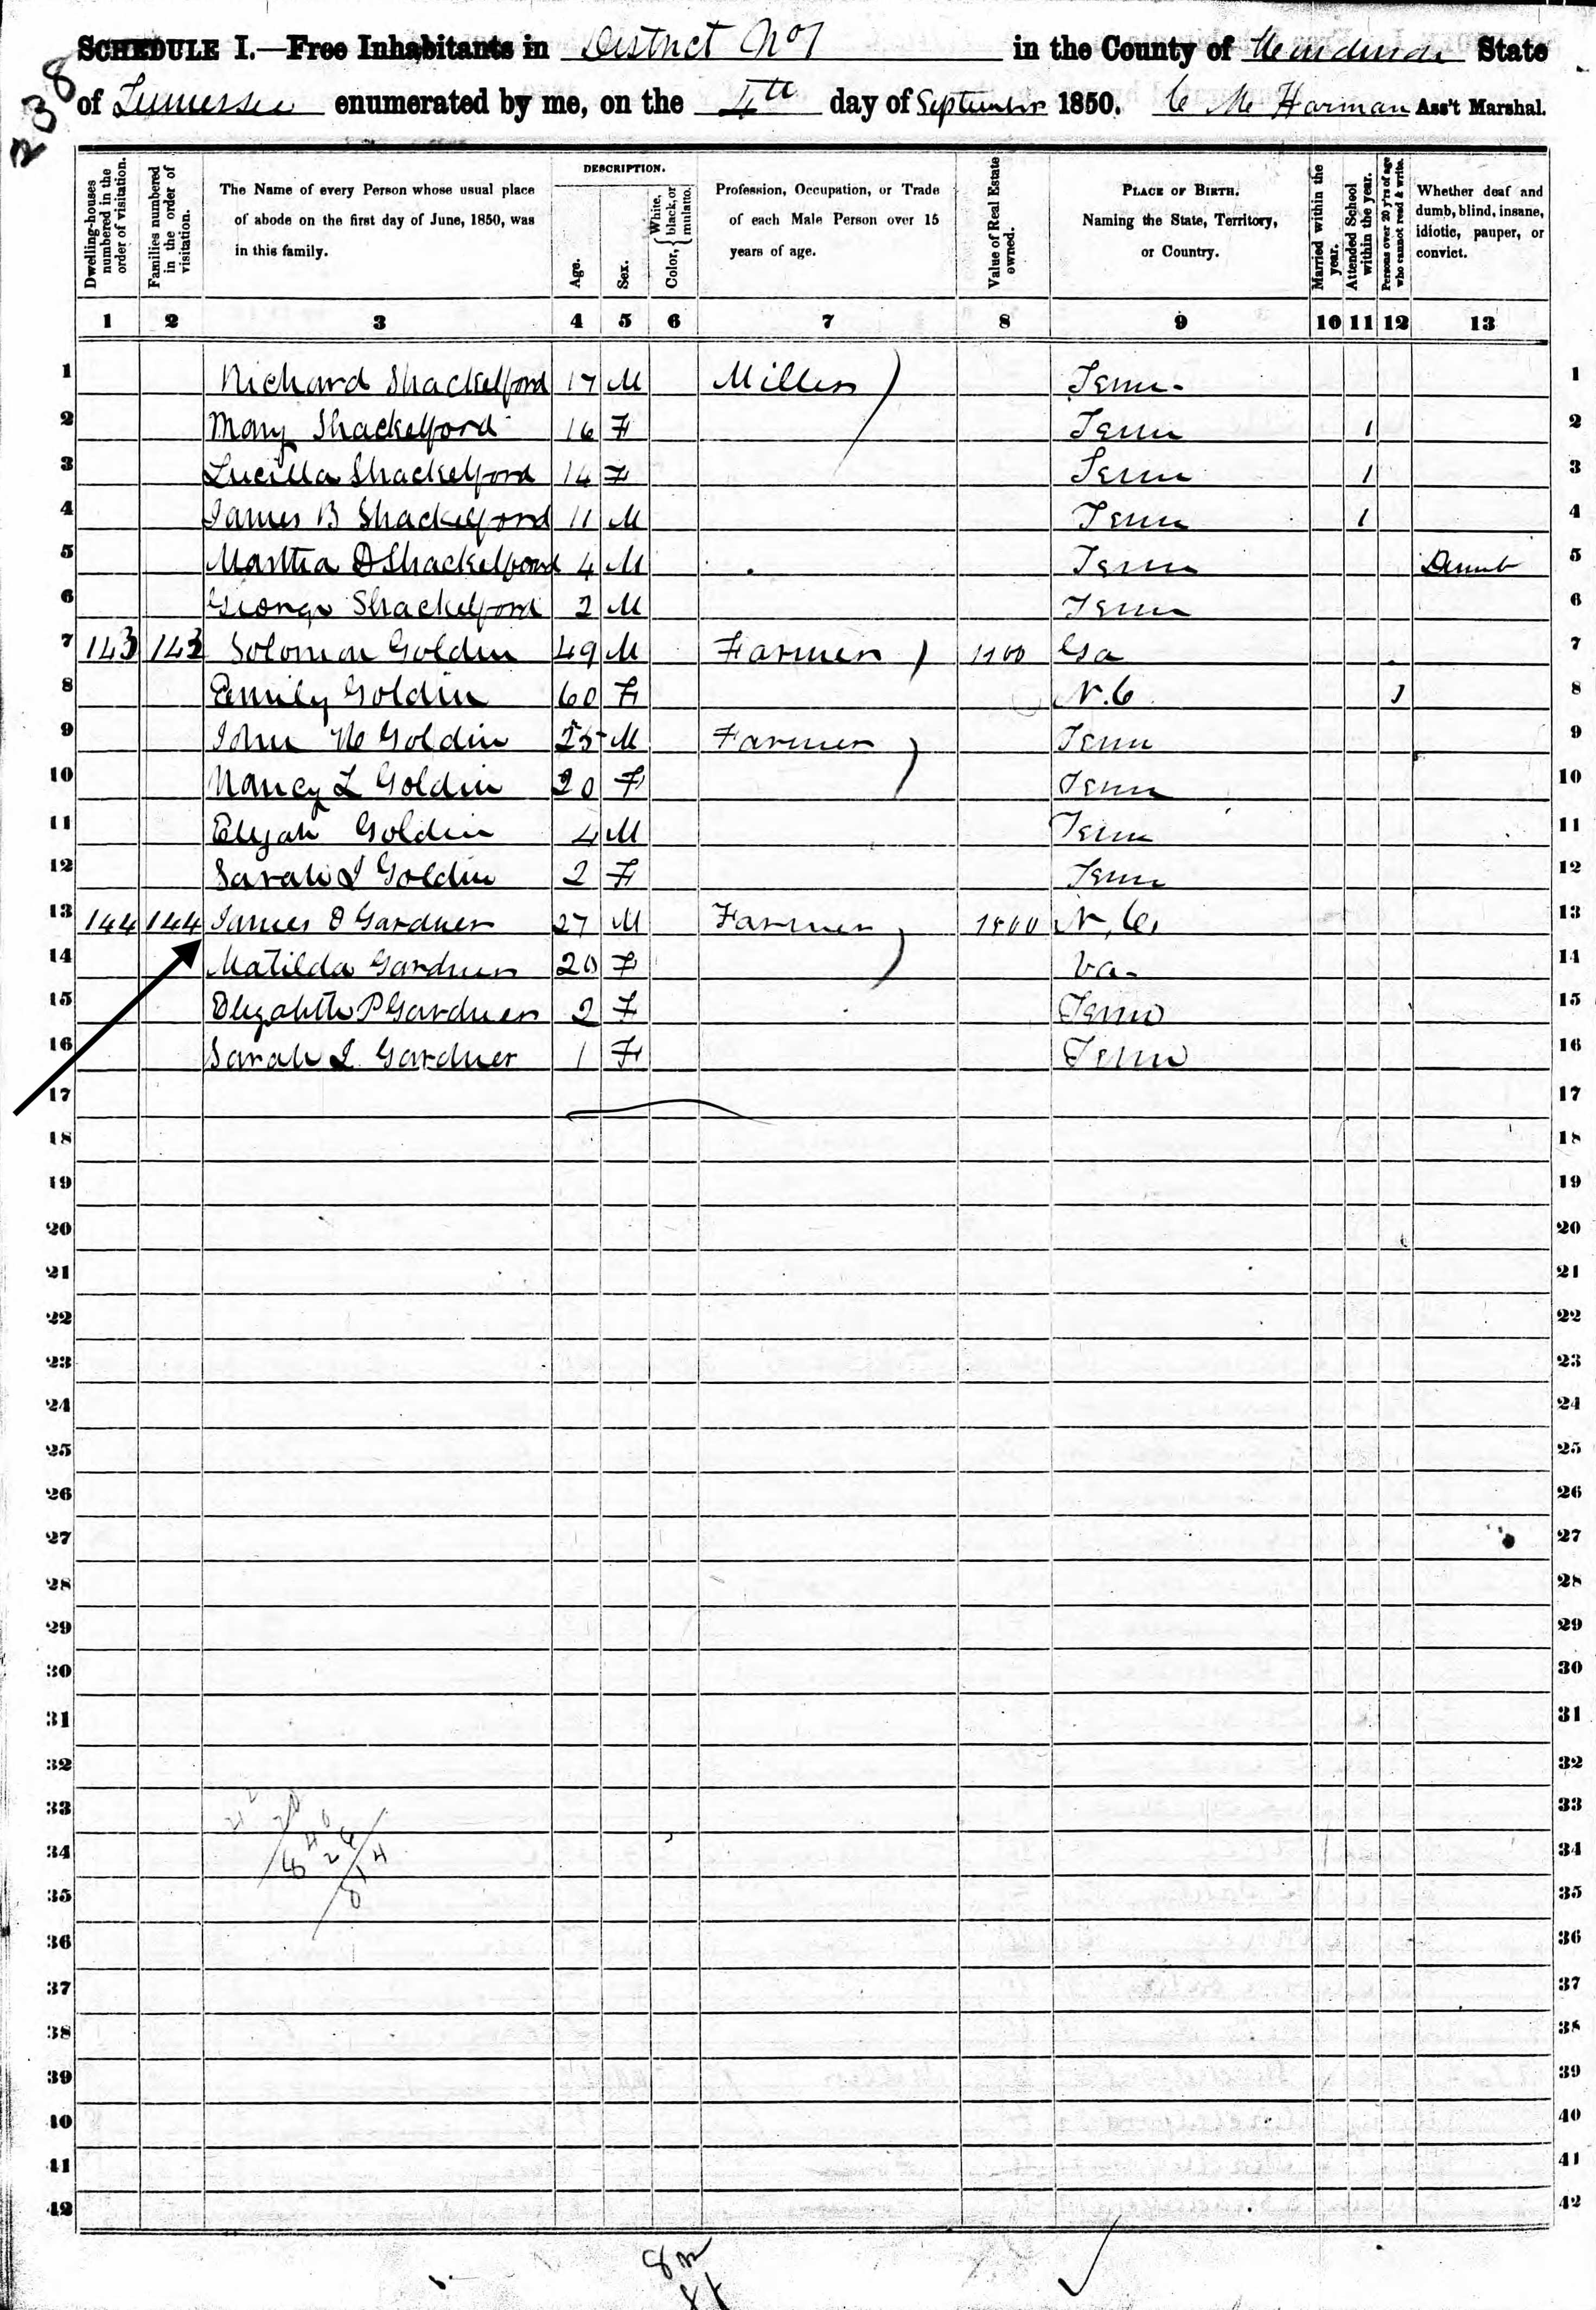 238
SCHEDULE I.—Free Inhabitants in District No 1 in the County of Henderson State
of Tennessee enumerated by me, on the 4th day of September 1850. C Mc Harman Ass't Marshal.
Dwelling-houses numbered in the order of visitation.
Families numbered in the order of visitation.
The Name of every Person whose usual place of abode on the first day of June, 1850, was in this family.
DESCRIPTION.
Age.
Sex.
Color, { White, black, or mulatto.
Profession, Occupation, or Trade of each Male Person over 15 years of age.
Value of Real Estate owned.
PLACE OF BIRTH. Naming the State, Territory, or Country.
Married within the year.
Attended School within the year.
Persons over 20 y'rs of age who cannot read & write.
Whether deaf and dumb, blind, insane, idiotic, pauper, or convict.
1 2 3 4 5 6 7 8 9 10 11 12 13
1 Richard Shackelford 17 M Miller Tenn. 1
2 Mary Shackelford 16 F Tenn 1 2
3 Lucilla Shackelford 14 F Tenn 1 3
4 James B Shackelford 11 M Tenn 1 4
5 Martha D Shackelford 4 M Tenn Dumb 5
6 George Shackelford 2 M Tenn 6
7 143 143 Solomon Goldin 49 M Farmer 1100 Ga 7
8 Emily Goldin 60 F N.C. 1 8
9 John Goldin 25 M Farmer Tenn 9
10 Nancy L Goldin 20 F Tenn 10
11 Elijah Goldin 4 M Tenn 11
12 Sarah J Goldin 2 F Tenn 12
13 144 144 James D Gardner 27 M Farmer N.C. 13
14 Matilda Gardner 20 F Va. 14
15 Elizabeth P Gardner 2 F Tenn 15
16 Sarah J Gardner 1 F Tenn 16
17 17
18 18
19 19
20 20
21 21
22 22
23 23
24 24
25 25
26 26
27 27
28 28
29 29
30 30
31 31
32 32
33 33
34 34
35 35
36 36
37 37
38 38
39 39
40 40
41 41
42 42
8 m
8 f